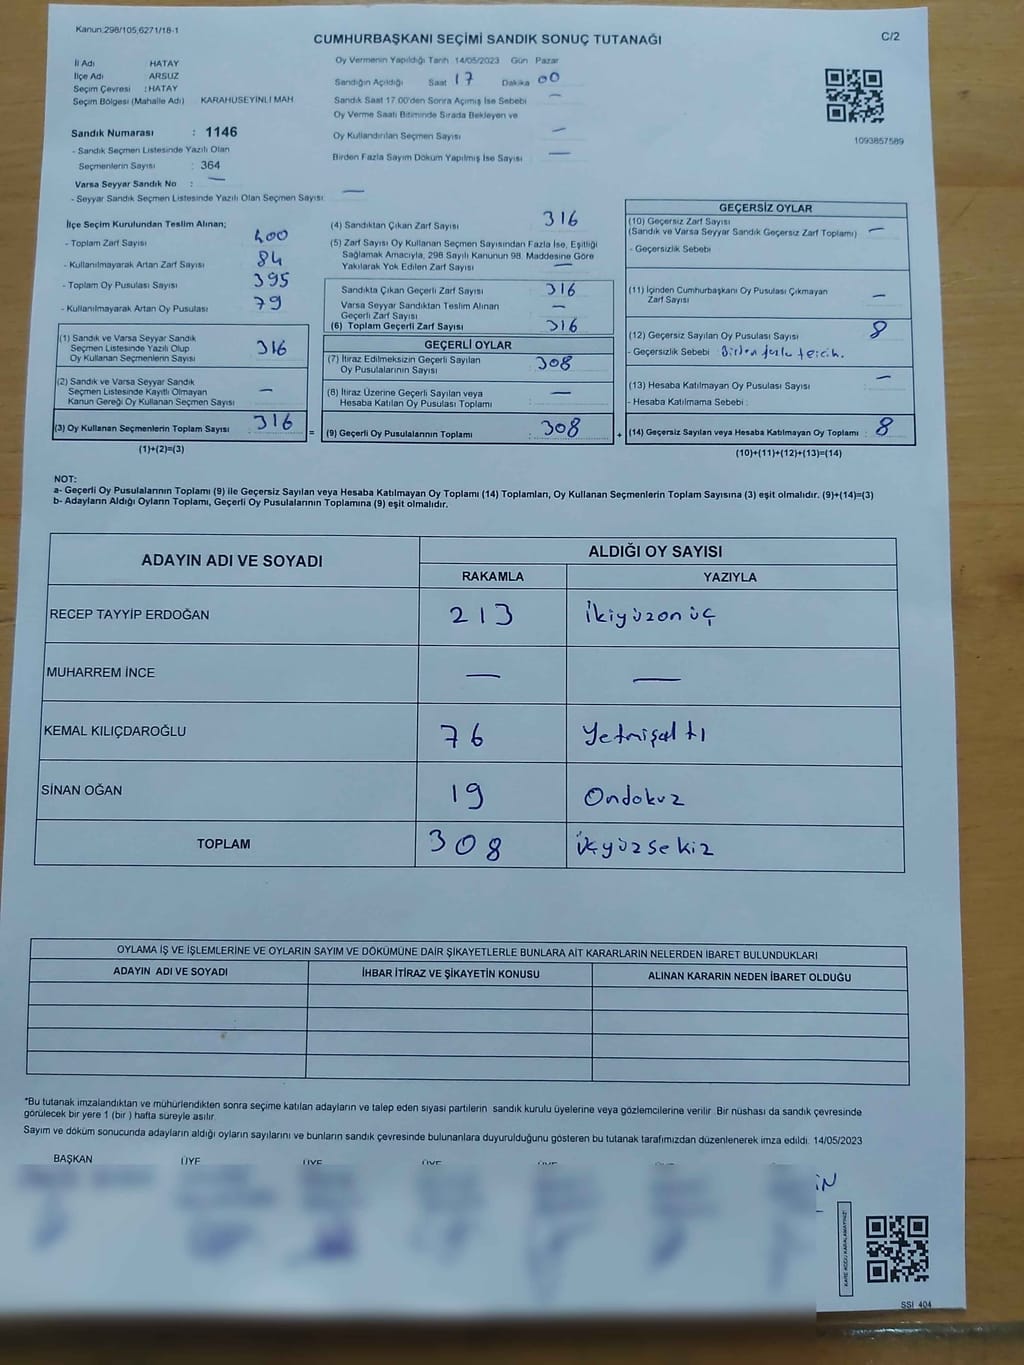 Kanun:298/105,6271/18-1
CUMHURBAŞKANI SEÇİMİ SANDIK SONUÇ TUTANAĞI
C/2
İl Adı HATAY
İlçe Adı ARSUZ
Seçim Çevresi :HATAY
Seçim Bölgesi (Mahalle Adı) KARAHUSEYİNLİ MAH
Sandık Numarası : 1146
- Sandık Seçmen Listesinde Yazılı Olan
Seçmenlerin Sayısı : 364
Varsa Seyyar Sandık No : —
- Seyyar Sandık Seçmen Listesinde Yazılı Olan Seçmen Sayısı: —
Oy Vermenin Yapıldığı Tarih 14/05/2023 Gün Pazar
Sandığın Açıldığı Saat 17 Dakika 00
Sandık Saat 17.00'den Sonra Açımış İse Sebebi —
Oy Verme Saati Bitiminde Sırada Bekleyen ve
Oy Kullandırılan Seçmen Sayısı —
Birden Fazla Sayım Döküm Yapılmış İse Sayısı —
1093857589
İlçe Seçim Kurulundan Teslim Alınan;
- Toplam Zarf Sayısı 400
- Kullanılmayarak Artan Zarf Sayısı 84
- Toplam Oy Pusulası Sayısı 395
- Kullanılmayarak Artan Oy Pusulası 79
(1) Sandık ve Varsa Seyyar Sandık
Seçmen Listesinde Yazılı Olup
Oy Kullanan Seçmenlerin Sayısı 316
(2) Sandık ve Varsa Seyyar Sandık
Seçmen Listesinde Kayıtlı Olmayan
Kanun Gereği Oy Kullanan Seçmen Sayısı —
(3) Oy Kullanan Seçmenlerin Toplam Sayısı 316 =
(1)+(2)=(3)
(4) Sandıktan Çıkan Zarf Sayısı 316
(5) Zarf Sayısı Oy Kullanan Seçmen Sayısından Fazla İse, Eşitliği
Sağlamak Amacıyla, 298 Sayılı Kanunun 98. Maddesine Göre
Yakılarak Yok Edilen Zarf Sayısı —
Sandıkta Çıkan Geçerli Zarf Sayısı 316
Varsa Seyyar Sandıktan Teslim Alınan
Geçerli Zarf Sayısı —
(6) Toplam Geçerli Zarf Sayısı 316
GEÇERLİ OYLAR
(7) İtiraz Edilmeksizin Geçerli Sayılan
Oy Pusulalarının Sayısı : 308
(8) İtiraz Üzerine Geçerli Sayılan veya
Hesaba Katılan Oy Pusulası Toplamı : —
(9) Geçerli Oy Pusulalarının Toplamı : 308 +
GEÇERSİZ OYLAR
(10) Geçersiz Zarf Sayısı
(Sandık ve Varsa Seyyar Sandık Geçersiz Zarf Toplamı) —
- Geçersizlik Sebebi
(11) İçinden Cumhurbaşkanı Oy Pusulası Çıkmayan
Zarf Sayısı —
(12) Geçersiz Sayılan Oy Pusulası Sayısı 8
- Geçersizlik Sebebi Birden fazla tercih.
(13) Hesaba Katılmayan Oy Pusulası Sayısı —
- Hesaba Katılmama Sebebi :
(14) Geçersiz Sayılan veya Hesaba Katılmayan Oy Toplamı : 8
(10)+(11)+(12)+(13)=(14)
NOT:
a- Geçerli Oy Pusulalarının Toplamı (9) ile Geçersiz Sayılan veya Hesaba Katılmayan Oy Toplamı (14) Toplamları, Oy Kullanan Seçmenlerin Toplam Sayısına (3) eşit olmalıdır. (9)+(14)=(3)
b- Adayların Aldığı Oyların Toplamı, Geçerli Oy Pusulalarının Toplamına (9) eşit olmalıdır.
ADAYIN ADI VE SOYADI ALDIĞI OY SAYISI
RAKAMLA YAZIYLA
RECEP TAYYİP ERDOĞAN 213 İkiyüzonüç
MUHARREM İNCE — —
KEMAL KILIÇDAROĞLU 76 Yetmişaltı
SİNAN OĞAN 19 Ondokuz
TOPLAM 308 üçyüzsekiz
OYLAMA İŞ VE İŞLEMLERİNE VE OYLARIN SAYIM VE DÖKÜMÜNE DAİR ŞİKAYETLERLE BUNLARA AİT KARARLARIN NELERDEN İBARET BULUNDUKLARI
ADAYIN ADI VE SOYADI İHBAR İTİRAZ VE ŞİKAYETİN KONUSU ALINAN KARARIN NEDEN İBARET OLDUĞU
*Bu tutanak imzalandıktan ve mühürlendikten sonra seçime katılan adayların ve talep eden siyasi partilerin sandık kurulu üyelerine veya gözlemcilerine verilir. Bir nüshası da sandık çevresinde
görülecek bir yere 1 (bir) hafta süreyle asılır.
Sayım ve döküm sonucunda adayların aldığı oyların sayılarını ve bunların sandık çevresinde bulunanlara duyurulduğunu gösteren bu tutanak tarafımızdan düzenlenerek imza edildi. 14/05/2023
BAŞKAN ÜYE ÜYE ÜYE
İN
KARE KODU KARALAMAYINIZ!
SSI_404